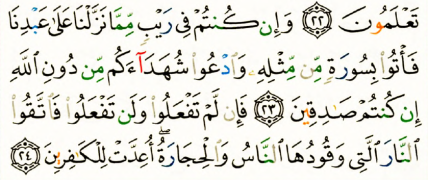 تَعْلَمُونَ ٢٢ وَإِن كُنتُمْ فِى رَيْبٍ مِّمَّا نَزَّلْنَا عَلَىٰ عَبْدِنَا
فَأْتُوا۟ بِسُورَةٍ مِّن مِّثْلِهِۦ وَٱدْعُوا۟ شُهَدَآءَكُم مِّن دُونِ ٱللَّهِ
إِن كُنتُمْ صَٰدِقِينَ ٢٣ فَإِن لَّمْ تَفْعَلُوا۟ وَلَن تَفْعَلُوا۟ فَٱتَّقُوا۟
ٱلنَّارَ ٱلَّتِى وَقُودُهَا ٱلنَّاسُ وَٱلْحِجَارَةُ ۖ أُعِدَّتْ لِلْكَٰفِرِينَ ٢٤